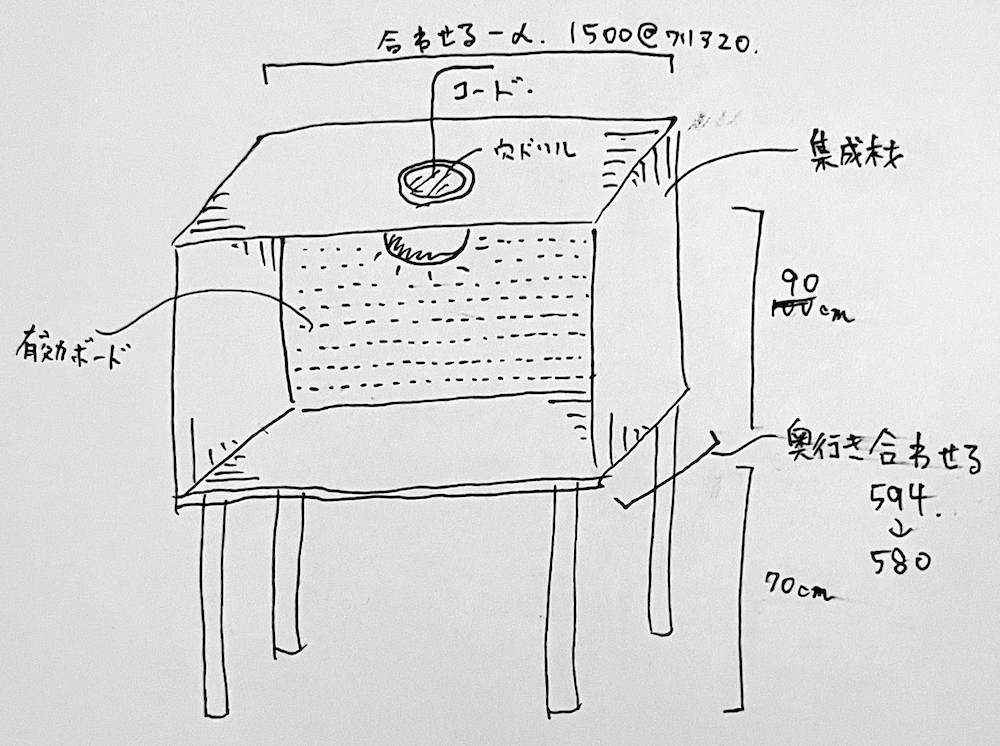 合わせる-α. 1500@711320.
コード.
穴ドリル
集成材
90
100cm
有効ボード
奥行き合わせる
594.
↓
580
70cm